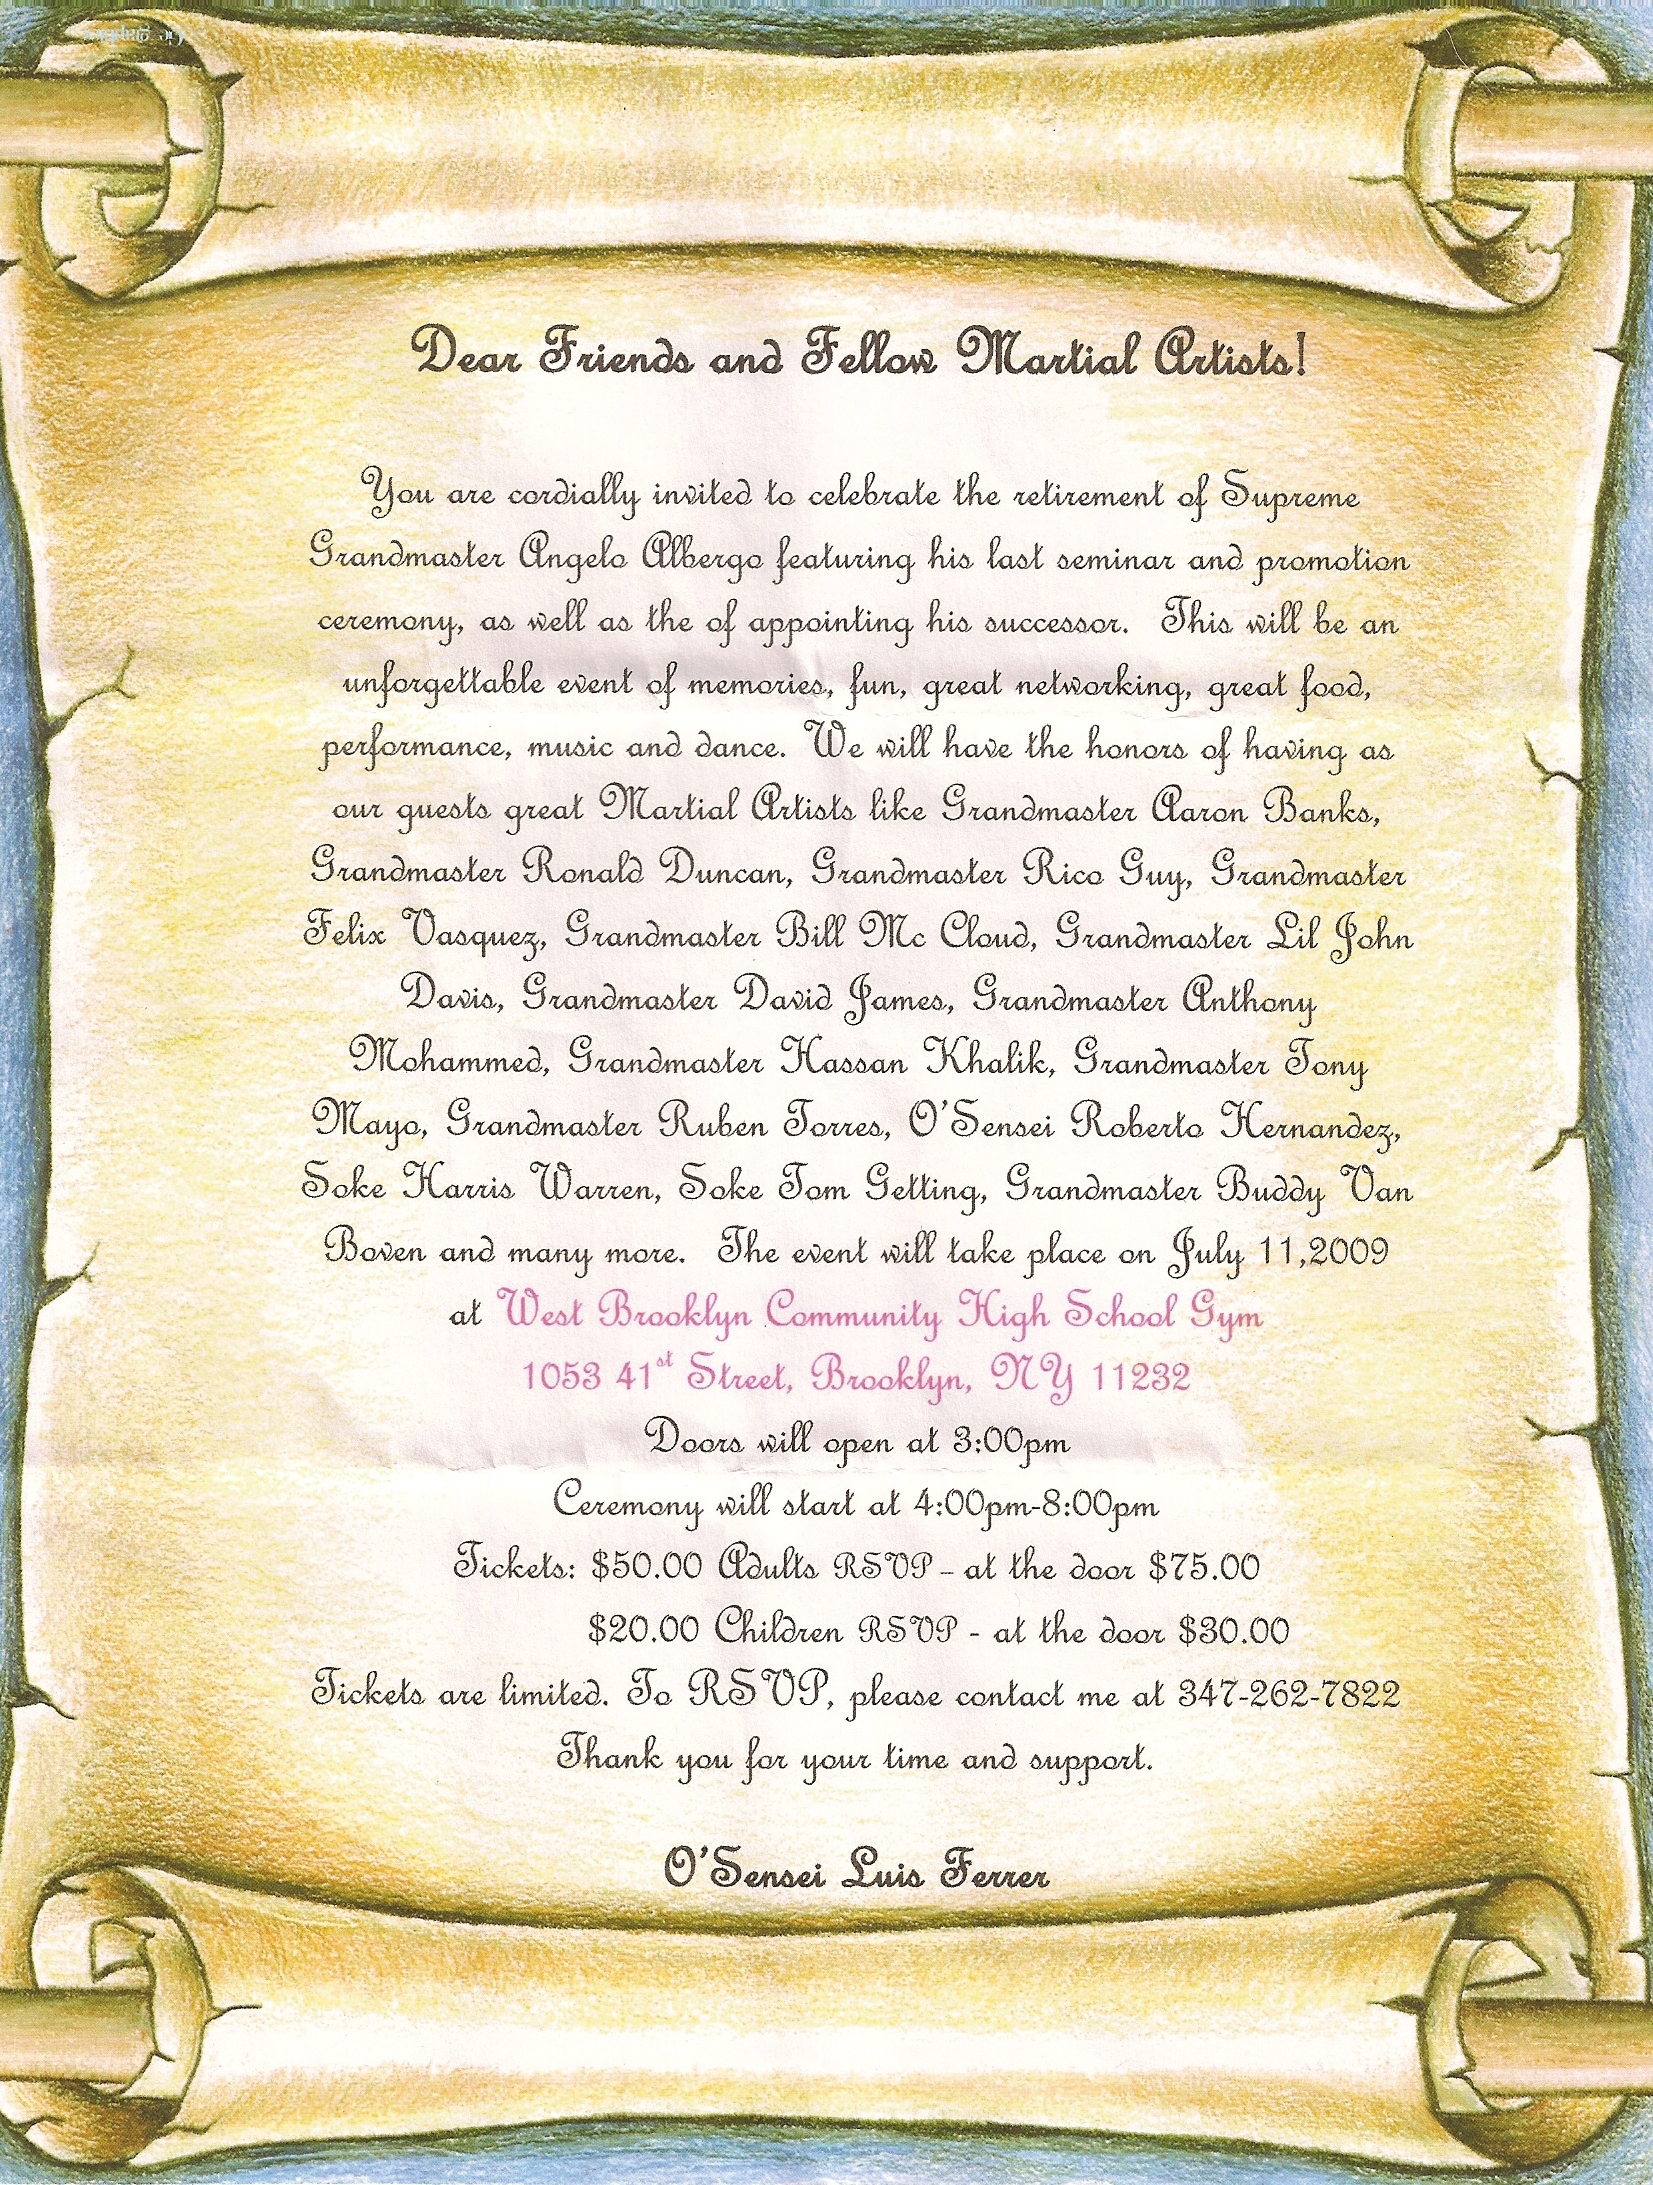 Dear Friends and Fellow Martial Artists!
You are cordially invited to celebrate the retirement of Supreme
Grandmaster Angelo Albergo featuring his last seminar and promotion
ceremony, as well as the of appointing his successor. This will be an
unforgettable event of memories, fun, great networking, great food,
performance, music and dance. We will have the honors of having as
our guests great Martial Artists like Grandmaster Aaron Banks,
Grandmaster Ronald Duncan, Grandmaster Rico Guy, Grandmaster
Felix Vasquez, Grandmaster Bill Mc Cloud, Grandmaster Lil John
Davis, Grandmaster David James, Grandmaster Anthony
Mohammed, Grandmaster Hassan Khalik, Grandmaster Tony
Mayo, Grandmaster Ruben Torres, O'Sensei Roberto Hernandez,
Soke Harris Warren, Soke Tom Getting, Grandmaster Buddy Van
Boven and many more. The event will take place on July 11,2009
at West Brooklyn Community High School Gym
1053 41st Street, Brooklyn, NY 11232
Doors will open at 3:00pm
Ceremony will start at 4:00pm-8:00pm
Tickets: $50.00 Adults RSVP - at the door $75.00
$20.00 Children RSVP - at the door $30.00
Tickets are limited. To RSVP, please contact me at 347-262-7822
Thank you for your time and support.
O'Sensei Luis Ferrer